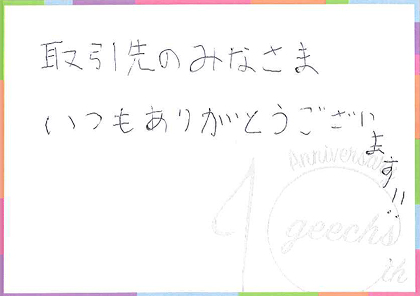 取引先のみなさま
いつもありがとうございます!!
anniversary
10th
geechs